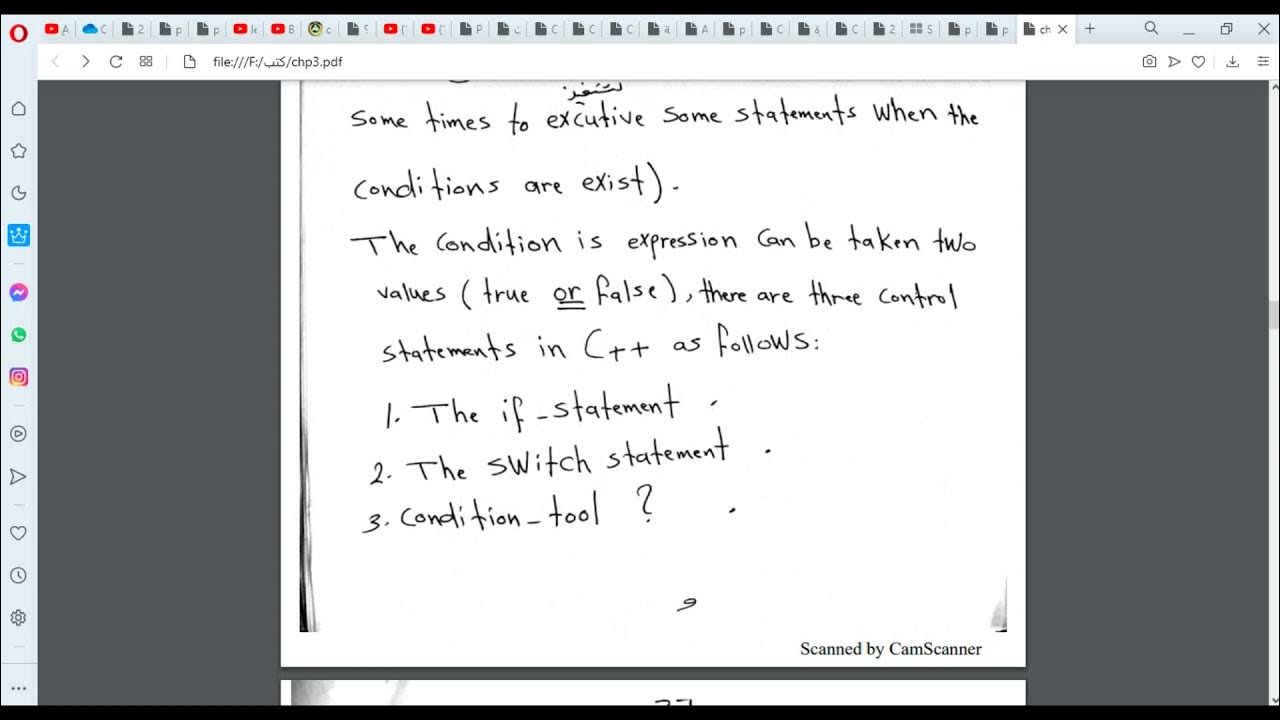 file:///F:/كتب/chp3.pdf
ch
لتنفيذ
Some times to excutive Some statements when the
conditions are exist).
The condition is expression can be taken two
values ( true or false), there are three control
statements in C++ as follows:
1. The if_statement .
2. The switch statement .
3. condition_tool ? .
و
Scanned by CamScanner